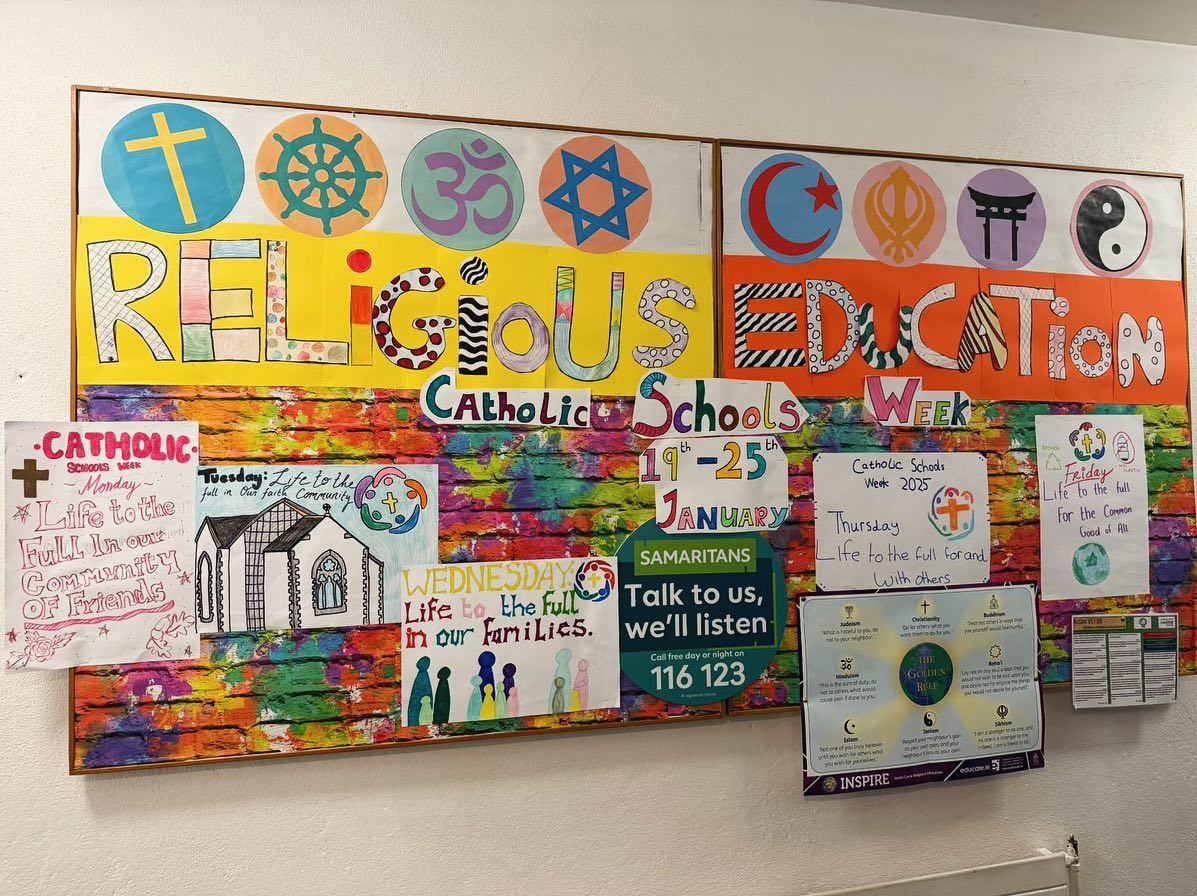 RELiGiOUS EDUCATiON
Catholic Schools Week
19th-25th
January
·CATHOLIC·
SCHOOLS WEEK
~Monday~
Life to the
Full In our
Community
of Friends
Tuesday: Life to the
full in Our faith Community
WEDNESDAY:
Life to the full
in our families.
SAMARITANS
Talk to us,
we'll listen
Call free day or night on
116 123
A registered charity
Catholic Schools
Week 2025
Thursday
Life to the full for and
With others
Friday
Life to the full
For the Common
Good of All
Judaism
"What is hateful to you, do
not to your neighbour."
Christianity
"Do for others what you
want them to do for you."
Buddhism
"Treat not others in ways that
you yourself would find hurtful."
Hinduism
"This is the sum of duty: do
not to others what would
cause pain if done to you."
THE
GOLDEN
RULE
Baha'i
"Lay not on any soul a load that you
would not wish to be laid upon you,
and desire not for anyone the things
you would not desire for yourself."
Islam
"Not one of you truly believes
until you wish for others what
you wish for yourselves."
Taoism
"Regard your neighbour's gain
as your own gain, and your
neighbour's loss as your own."
Sikhism
"I am a stranger to no one, and
no one is a stranger to me.
Indeed, I am a friend to all."
INSPIRE
educate.ie
Action VERBS